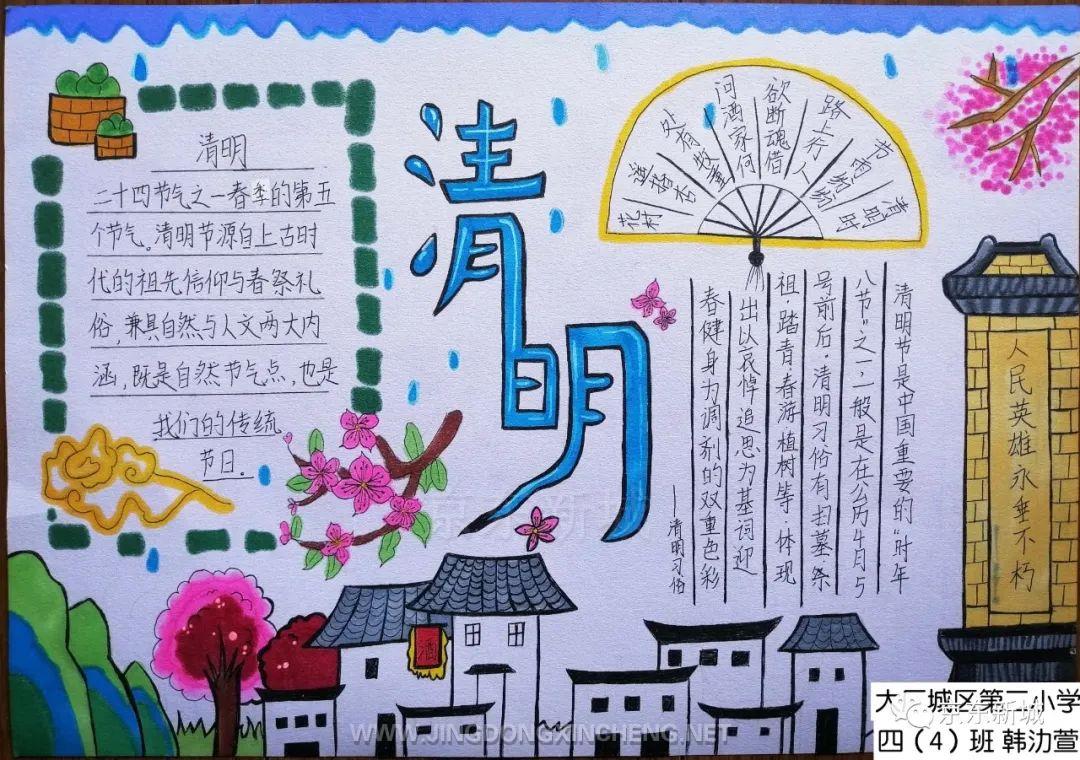 清明
二十四节气之一春季的第五
个节气。清明节源自上古时
代的祖先信仰与春祭礼
俗,兼具自然与人文两大内
涵,既是自然节气点,也是
我们的传统
节日.
清明
清明时
节雨纷纷
路上行人
欲断魂借
问酒家何
处有牧童
遥指杏
花村
清明节是中国重要的“时年
八节”之一,一般是在公历4月5
号前后.清明习俗有扫墓祭
祖.踏青春游.植树等.体现
出以哀悼追思为基词迎
春健身为调剂的双重色彩
——清明习俗
人民英雄永垂不朽
酒
城区第小学
四（4）班 韩氻萱
京东新城
WWW.JINGDONGXINCHENG.NET